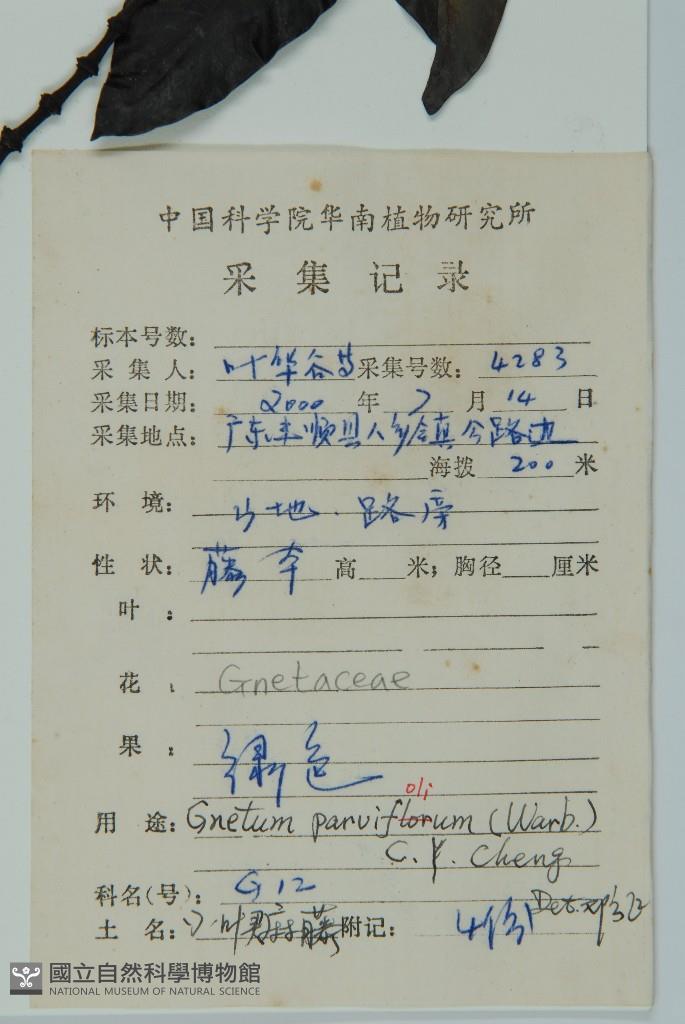 中国科学院华南植物研究所
采集记录
标本号数：
采集人：叶华谷等 采集号数：4283
采集日期：2000年7月14日
采集地点：广东丰顺县八乡公路边
海拨 200 米
环境：山地．路旁
性状：藤本 高 米；胸径 厘米
叶：
花：Gnetaceae
果：绿色
oli
用途：Gnetum parviflorum (Warb.)
C. Y. Cheng
科名(号)：G12
土名：小叶买麻藤 附记：4份 Det.
國立自然科學博物館
NATIONAL MUSEUM OF NATURAL SCIENCE